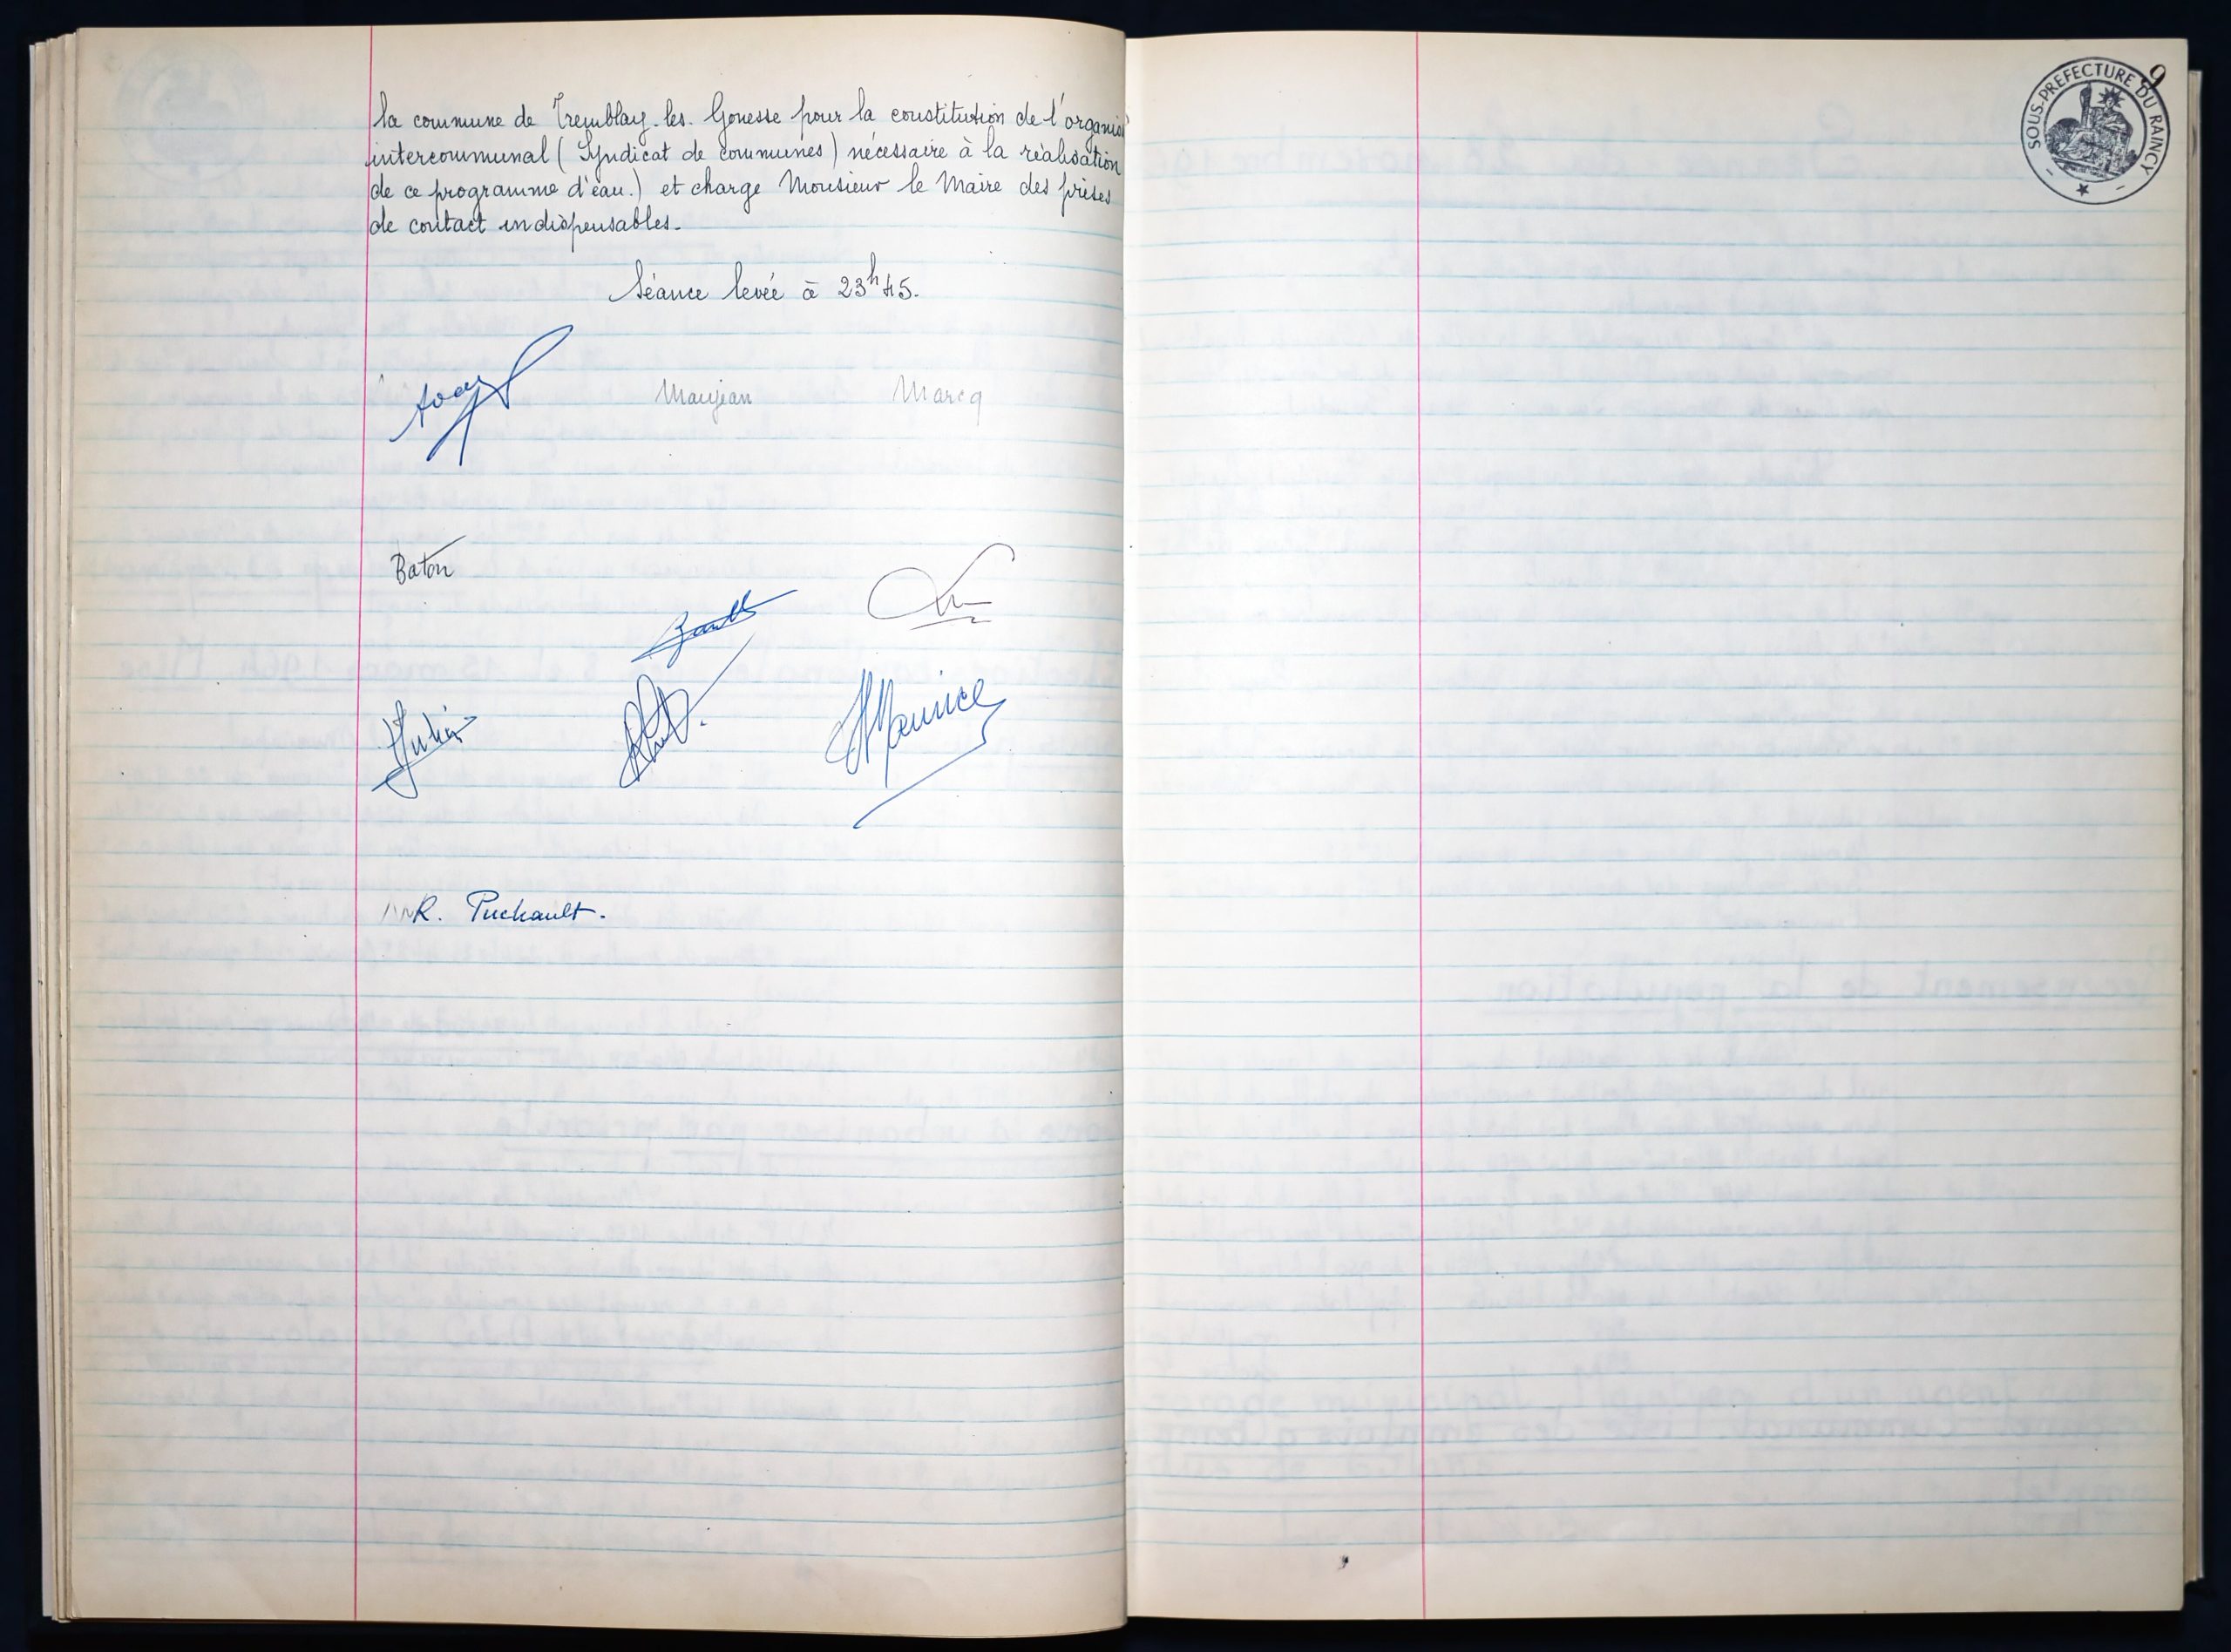 la commune de Tremblay-les-Gonesse pour la constitution de l'organis
intercommunal (Syndicat de communes) nécessaire à la réalisation
de ce programme d'eau.) et charge Monsieur le Maire des prises
de contact indispensables.
Séance levée à 23h45.
Maujean Marcq
Baton
Julien
HMaurice
R. Puchault.
9
SOUS-PREFECTURE DU RAINCY